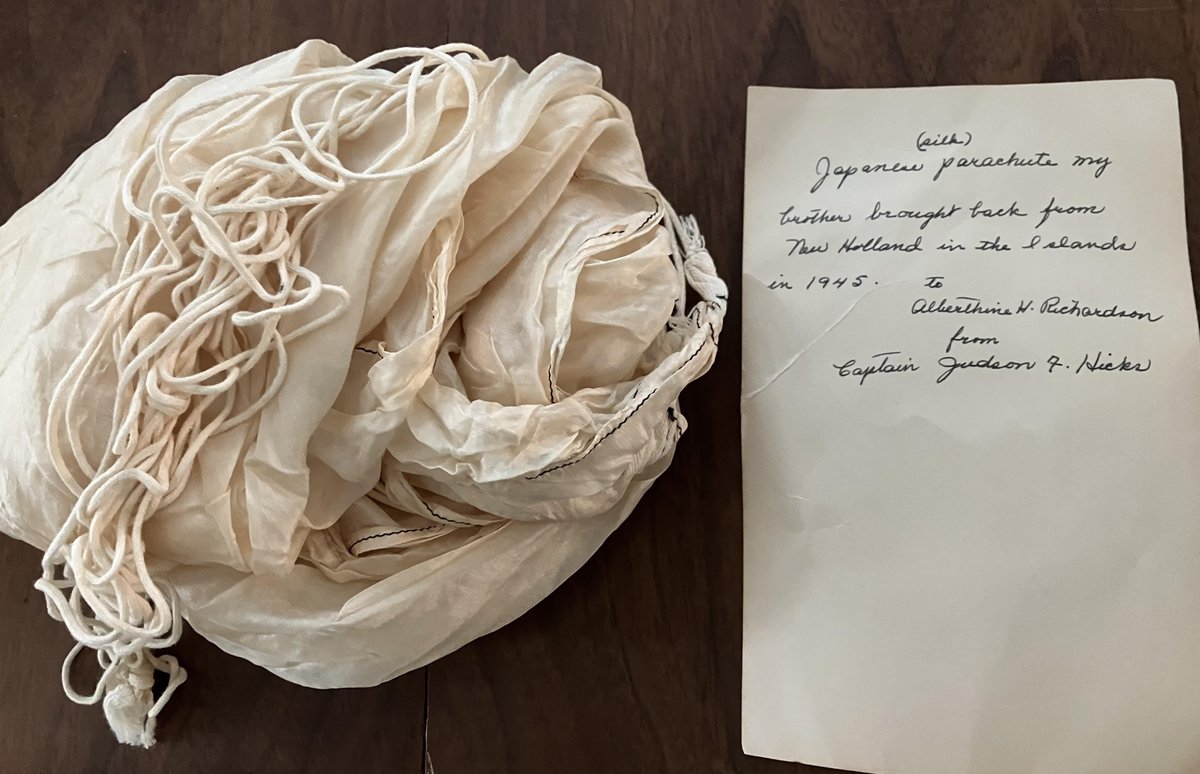 (silk)
Japanese parachute my
brother brought back from
New Holland in the Islands
in 1945. to
Alberthine H. Richardson
from
Captain Judson F. Hicks